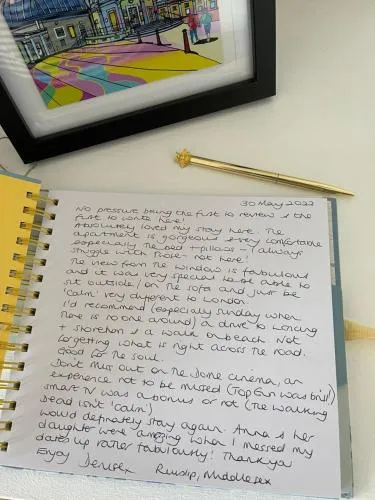 30 May 2022
No pressure being the first to review & the
first to write here!
Absolutely loved my stay here. The
apartment is gorgeous & very comfortable
especially the bed + pillows - I always
struggle with those - not here!
The view from the window is fabulous
and it was very special to be able to
sit outside/on the sofa and just be
'calm' very different to London.
I'd recommend (especially Sunday when
there is no one around) a drive to Lancing
+ Shoreham & a walk on beach. Not
forgetting what is right across the road.
Good for the soul.
Don't miss out on the Dome cinema, an
experience not to be missed (Top Gun was brill)
smart TV was a bonus or not (The Walking
Dead isn't 'calm')
would definately stay again. Anna & her
daughter were amazing when I messed my
dates up rather fabulously! Thankyou
Enjoy Denise x Ruislip, Middlesex